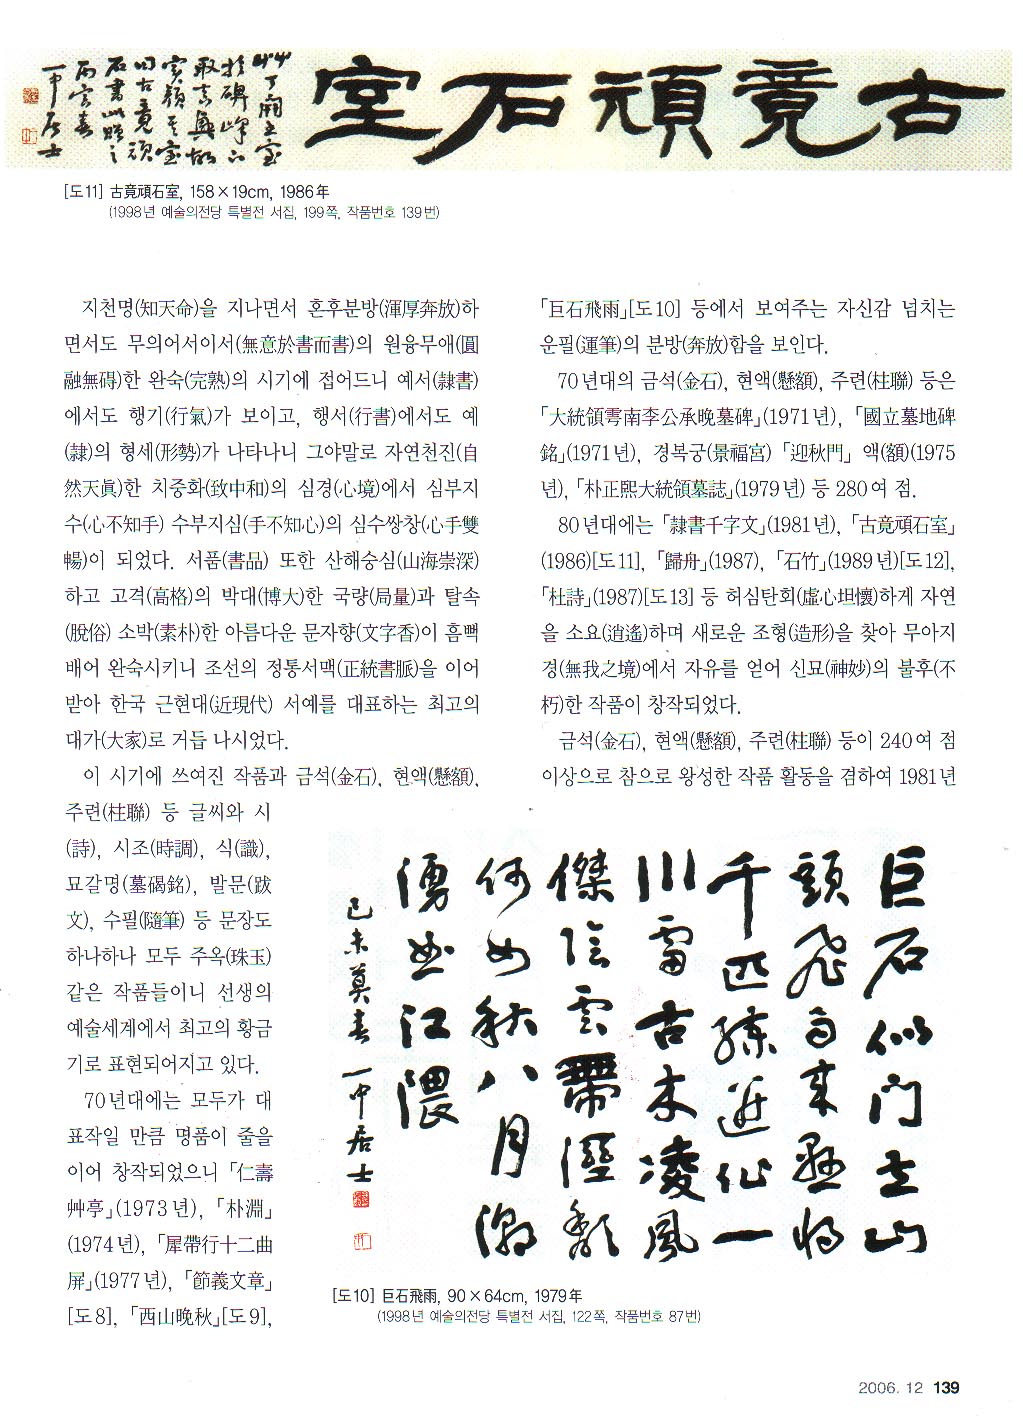 古竟頑石室
曰古竟頑
丙寅春
一中居士
[도11] 古竟頑石室, 158×19cm, 1986年
(1998년 예술의전당 특별전 서집, 199쪽, 작품번호 139번)
지천명(知天命)을 지나면서 혼후분방(渾厚奔放)하
면서도 무의어서이서(無意於書而書)의 원융무애(圓
融無碍)한 완숙(完熟)의 시기에 접어드니 예서(隷書)
에서도 행기(行氣)가 보이고, 행서(行書)에서도 예
(隷)의 형세(形勢)가 나타나니 그야말로 자연천진(自
然天眞)한 치중화(致中和)의 심경(心境)에서 심부지
수(心不知手) 수부지심(手不知心)의 심수쌍창(心手雙
暢)이 되었다. 서품(書品) 또한 산해숭심(山海崇深)
하고 고격(高格)의 박대(博大)한 국량(局量)과 탈속
(脫俗) 소박(素朴)한 아름다운 문자향(文字香)이 흠뻑
배어 완숙시키니 조선의 정통서맥(正統書脈)을 이어
받아 한국 근현대(近現代) 서예를 대표하는 최고의
대가(大家)로 거듭 나시었다.
이 시기에 쓰여진 작품과 금석(金石), 현액(懸額),
주련(柱聯) 등 글씨와 시
(詩), 시조(時調), 식(識),
묘갈명(墓碣銘), 발문(跋
文), 수필(隨筆) 등 문장도
하나하나 모두 주옥(珠玉)
같은 작품들이니 선생의
예술세계에서 최고의 황금
기로 표현되어지고 있다.
70년대에는 모두가 대
표작일 만큼 명품이 줄을
이어 창작되었으니 「仁壽
艸亭」(1973년), 「朴淵」
(1974년), 「犀帶行十二曲
屛」(1977년), 「節義文章」
[도8], 「西山晩秋」[도9],
「巨石飛雨」[도10] 등에서 보여주는 자신감 넘치는
운필(運筆)의 분방(奔放)함을 보인다.
70년대의 금석(金石), 현액(懸額), 주련(柱聯) 등은
「大統領雩南李公承晩墓碑」(1971년), 「國立墓地碑
銘」(1971년), 경복궁(景福宮) 「迎秋門」 액(額)(1975
년), 「朴正熙大統領墓誌」(1979년) 등 280여 점.
80년대에는 「隷書千字文」(1981년), 「古竟頑石室」
(1986)[도11], 「歸舟」(1987), 「石竹」(1989년)[도12],
「杜詩」(1987)[도13] 등 허심탄회(虛心坦懷)하게 자연
을 소요(逍遙)하며 새로운 조형(造形)을 찾아 무아지
경(無我之境)에서 자유를 얻어 신묘(神妙)의 불후(不
朽)한 작품이 창작되었다.
금석(金石), 현액(懸額), 주련(柱聯) 등이 240여 점
이상으로 참으로 왕성한 작품 활동을 겸하여 1981년
巨石似门立山
頭飛雨来懸將
千匹練迸作一
川雷古木凌風
傑陰雲帶溼頹
何如秋八月潮
湧曲江隈
己未莫春 一中居士
[도10] 巨石飛雨, 90×64cm, 1979年
(1998년 예술의전당 특별전 서집, 122쪽, 작품번호 87번)
2006. 12 139